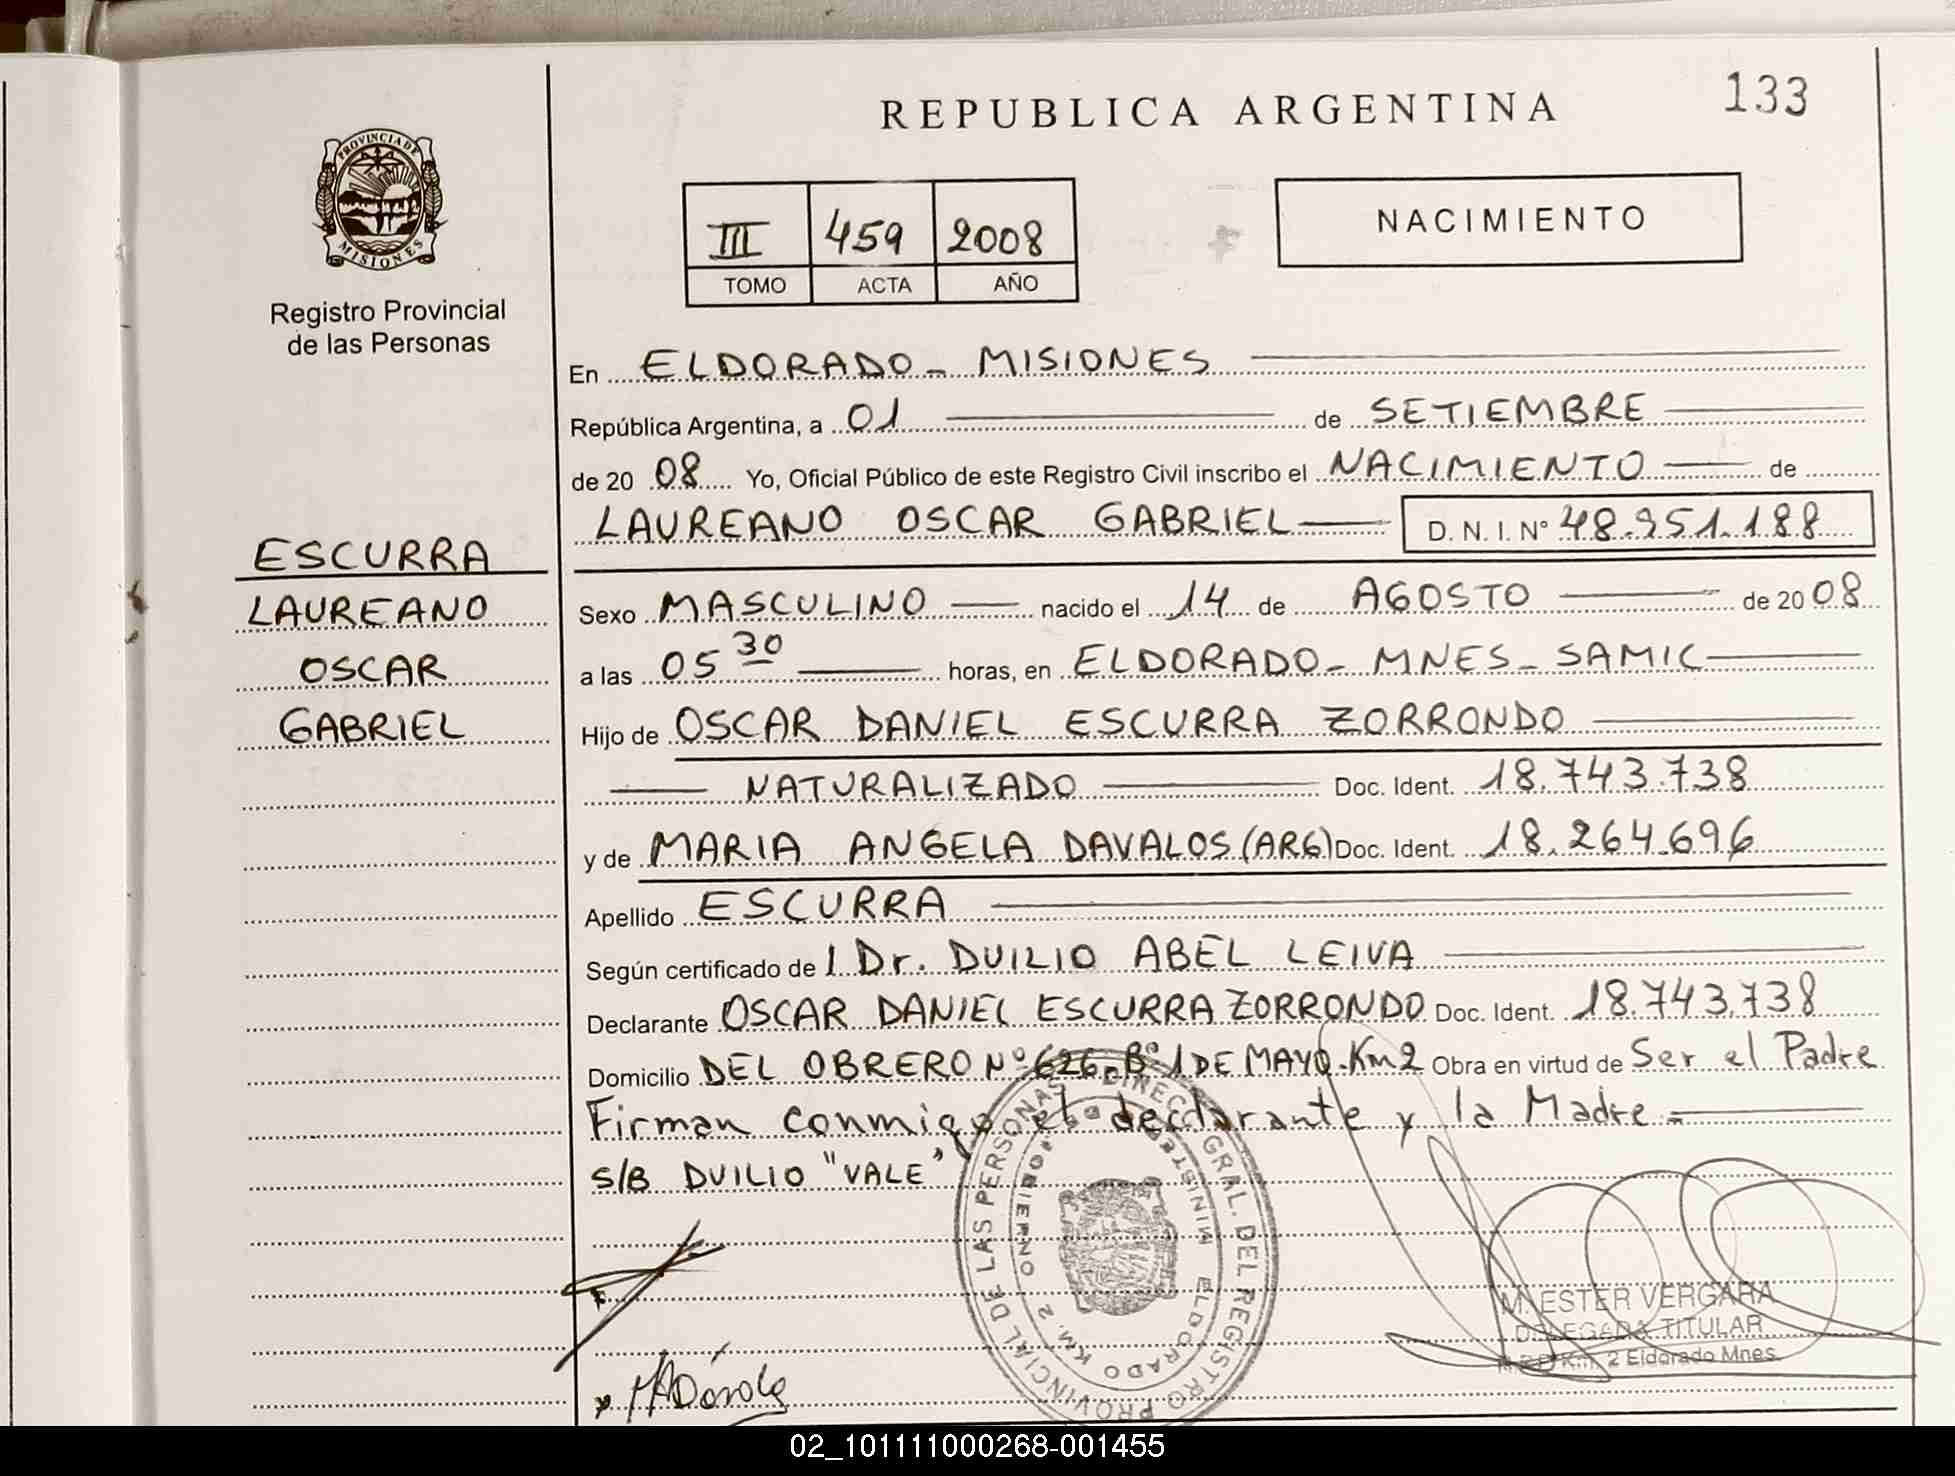 133
REPUBLICA ARGENTINA
PROVINCIA DE MISIONES
Registro Provincial
de las Personas
III 459 2008
TOMO ACTA AÑO
NACIMIENTO
En ELDORADO - MISIONES
República Argentina, a 01 de SETIEMBRE
de 20 08 Yo, Oficial Público de este Registro Civil inscribo el NACIMIENTO de
LAUREANO OSCAR GABRIEL D. N. I. N° 48.951.188
ESCURRA
LAUREANO
OSCAR
GABRIEL
Sexo MASCULINO nacido el 14 de AGOSTO de 20 08
a las 05 30 horas, en ELDORADO - MNES - SAMIC
Hijo de OSCAR DANIEL ESCURRA ZORRONDO
NATURALIZADO Doc. Ident. 18.743.738
y de MARIA ANGELA DAVALOS (ARG) Doc. Ident. 18.264.696
Apellido ESCURRA
Según certificado de l Dr. DUILIO ABEL LEIVA
Declarante OSCAR DANIEL ESCURRA ZORRONDO Doc. Ident. 18.743.738
Domicilio DEL OBRERO N° 626 - B° 1 DE MAYO - Km 2 Obra en virtud de Ser el Padre
Firman conmigo el declarante y la Madre.-
S/B DUILIO "VALE"
DIREC. GRAL. DEL REGISTRO PROVINCIAL DE LAS PERSONAS
GOBIERNO
ELDORADO KM. 2
M. ESTER VERGARA
DELEGADA TITULAR
R.P.P. Km. 2 Eldorado Mnes.
02_101111000268-001455